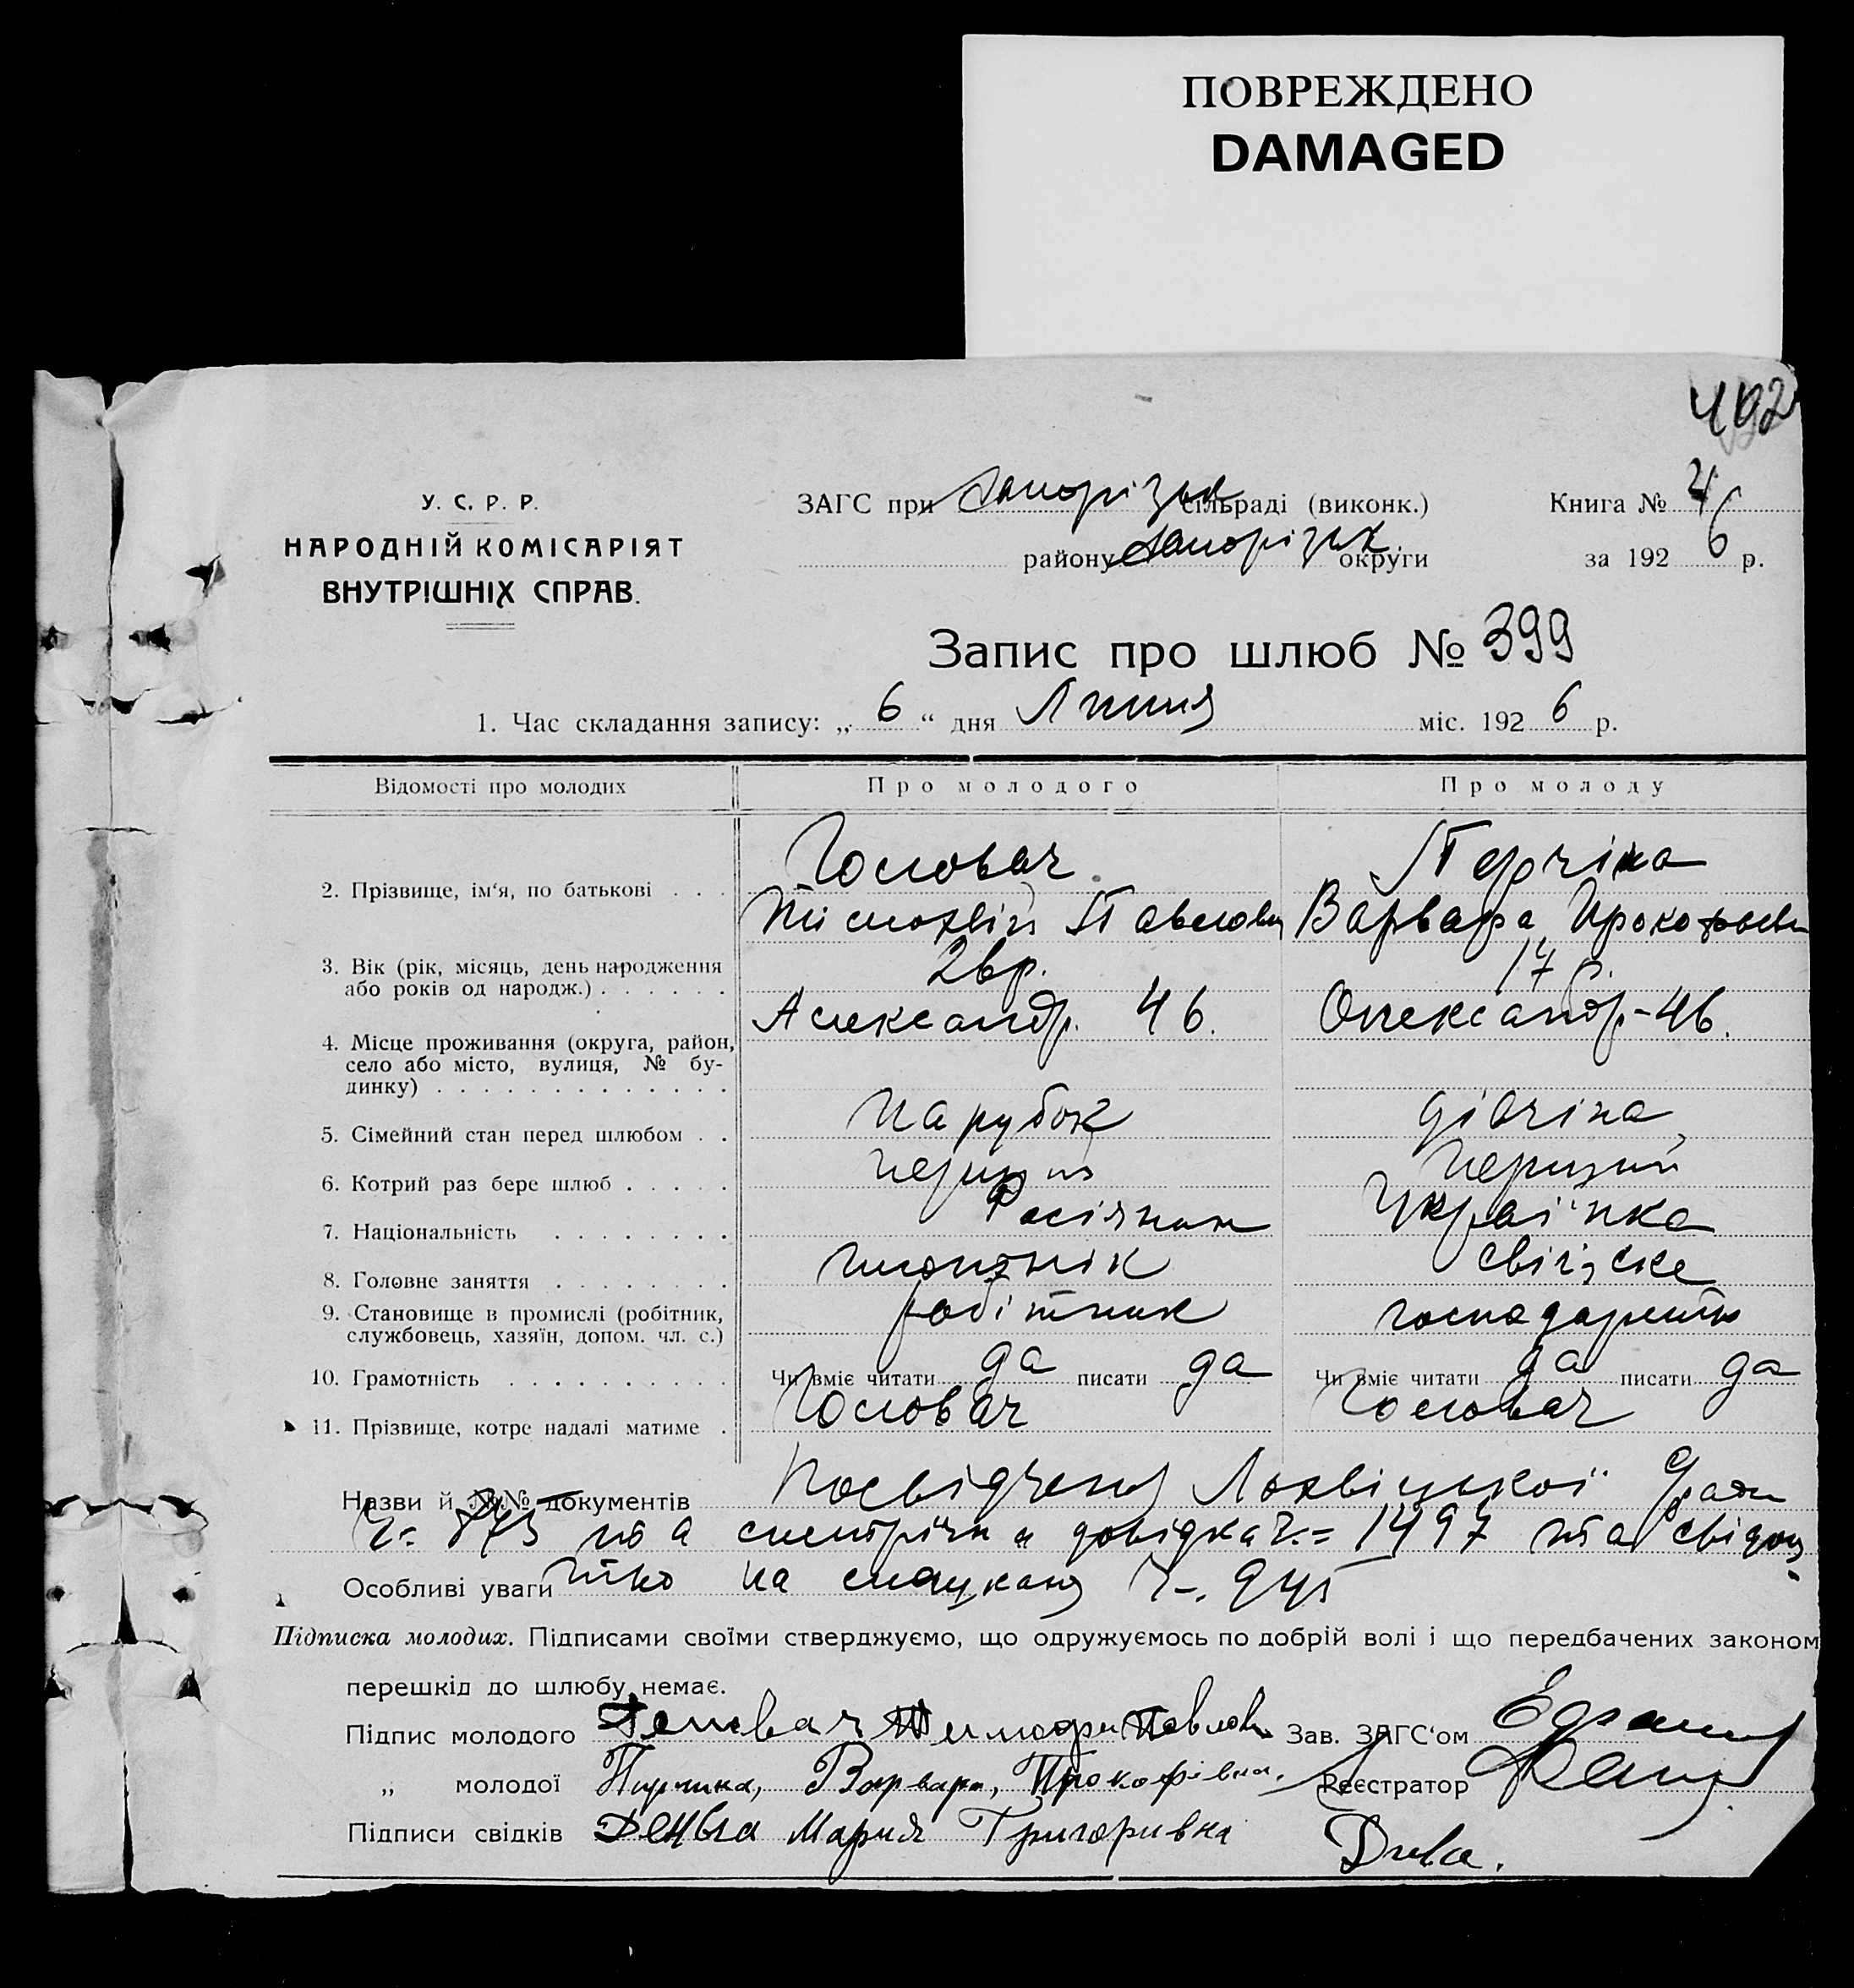 ПОВРЕЖДЕНО
DAMAGED
402
У. С. Р. Р.
НАРОДНІЙ КОМІСАРІЯТ
ВНУТРІШНІХ СПРАВ.
ЗАГС при Запорізьк сільраді (виконк.)
району Запорізьк. округи
Книга № 4
за 1926 р.
Запис про шлюб № 399
1. Час складання запису: „6“ дня Липня міс. 1926 р.
Відомості про молодих
Про молодого
Про молоду
2. Прізвище, ім‘я, по батькові . . .
Головач
Тімохвій Павлови
Перчіна
Варвара Прокофьевн
3. Вік (рік, місяць, день народження
або років од народж.) . . . . . .
26р.
17 р.
4. Місце проживання (округа, район,
село або місто, вулиця, № бу-
динку) . . . . . . . . . . . . .
Александр. 46.
Олександр-46.
5. Сімейний стан перед шлюбом . .
парубок
дівчіна,
6. Котрий раз бере шлюб . . . . .
перший
перший
7. Національність . . . . . . . .
Росіянин
Українка
8. Головне заняття . . . . . . . .
плотнік
сільске
9. Становище в промислі (робітник,
службовець, хазяїн, допом. чл. с.)
робітник
господарство
10. Грамотність . . . . . . . . . .
Чи вміє читати да писати да
Чи вміє читати да писати да
11. Прізвище, котре надалі матиме .
Головач
Головач
Назви й №№ документів Посвідченя Лохвіцкої
Ч-. 873 та довідка Ч-. 1497 та свідоц
Особливі уваги тво на Ч-.
Підписка молодих. Підписами своїми стверджуємо, що одружуємось по добрій волі і що передбачених законом
перешкід до шлюбу немає.
Підпис молодого Головач Тимофи Павлов
Зав. ЗАГС‘ом
„ молодої Пирчина, Варвара, Прокофівна.
Реєстратор
Підписи свідків Деньга Мария Григоривна